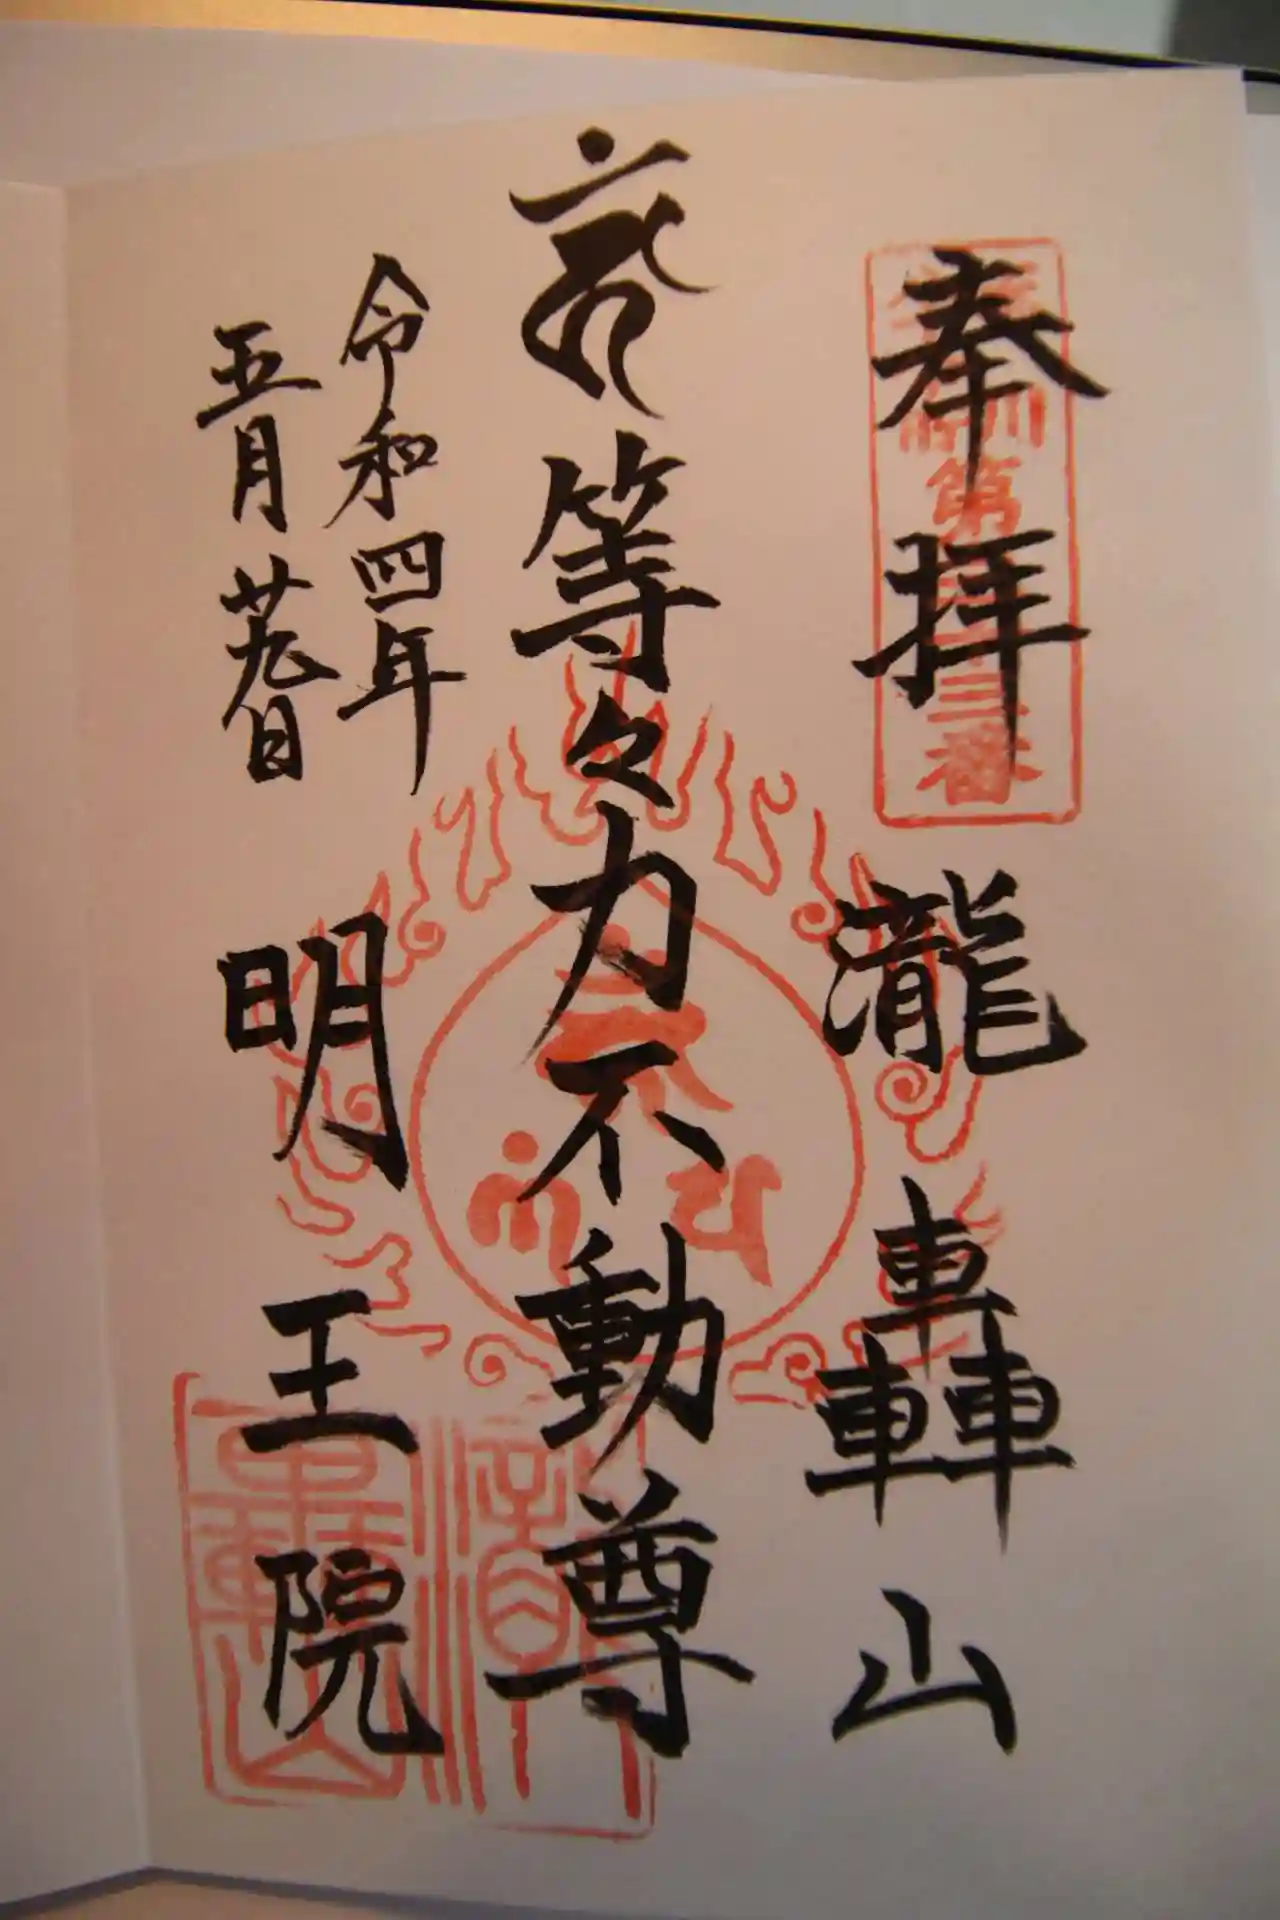 奉拝
瀧轟山
等々力不動尊
令和四年
五月廿九日
明王院